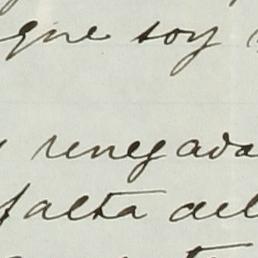 que soy
renegada
falta del